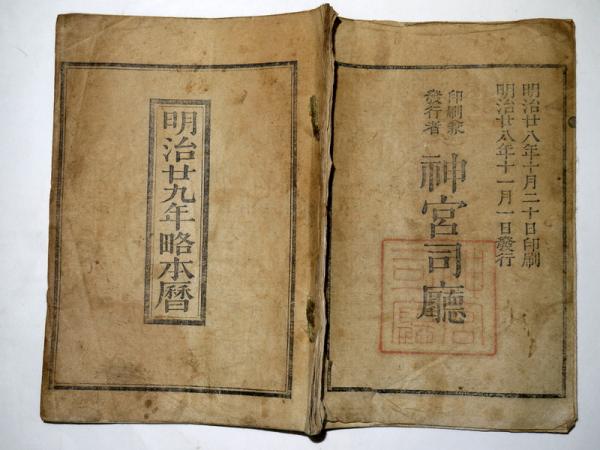 明治廿八年十月二十日印刷
明治廿八年十一月一日發行
印刷兼
發行者
神宮司廳
明治廿九年略本曆